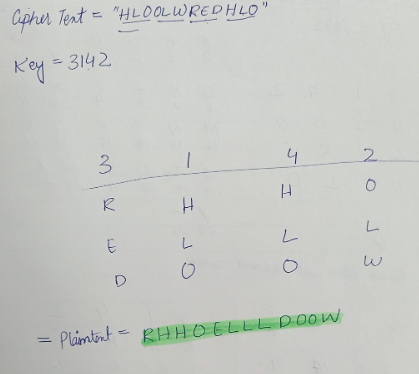 Cipher Text = "HLOOLWREDHLO"
Key = 3142
3 1 4 2
R H H O
E L L L
D O O W
= Plaintext = RHHOELLLDOOW